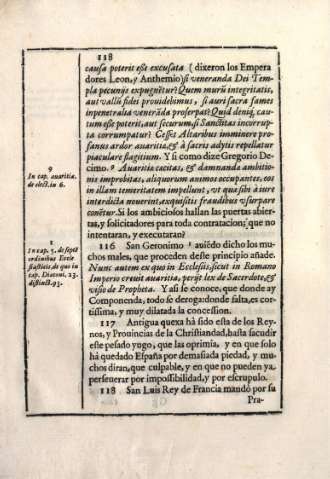 118
causa poterit esse excusata (dixeron los Empera
dores Leon, y Anthemio) si veneranda Dei Tem
pla pecunijs expugnẽtur? Quem murũ integritatis,
aut valli fides prouidebimus, si auri sacra fames
in penetralia venerãda proserpat? Quid deniq; cau
tum esse poterit, aut securum, si Sanctitas incorrup
ta corrumpatur? Cesset Altaribus imminere profa
nus ardor auaritiæ, & à sacris adytis repellatur
piaculare flagitium. Y si como dize Gregorio De
cimo. 9 Auaritiæ cæcitas, & damnandæ ambitio
nis improbitas, aliquorum animos occupantes, eos
in illam temeritatem impellunt, vt quæ sibi à iure
interdicta nouerint, exquisitis fraudibus vsurpare
conẽtur. Si los ambiciosos hallan las puertas abier
tas, y solicitadores para toda contratacion; que no
intentaran, y executaran?
116 San Geronimo 1 auiẽdo dicho los mu
chos males, que proceden deste principio añade.
Nunc autem ex quo in Ecclesijs, sicut in Romano
Imperio creuit auaritia, perijt lex de Sacerdote, &
visio de Propheta. Y assi se conoce, que donde ay
Componenda, todo se deroga: donde falta, es cor-
tissima, y muy dilatada la concession.
117 Antigua quexa hà sido esta de los Rey
nos, y Prouincias de la Christiandad, hasta sacudir
esse pesado yugo, que las oprimia, y en que solo
hà quedado España por demasiada piedad, y mu
chos diran, que culpable, y en que no pueden ya,
perseuerar por impossibilidad, y por escrupulo.
118 San Luis Rey de Francia mandó por su
Pra-
9
In cap. auaritiæ.
de elect. in 6.
1
In cap. 5. de sept
ordinibus Eccle
siasticis, de quo in
cap. Diaconi, 23.
distinct. 93.